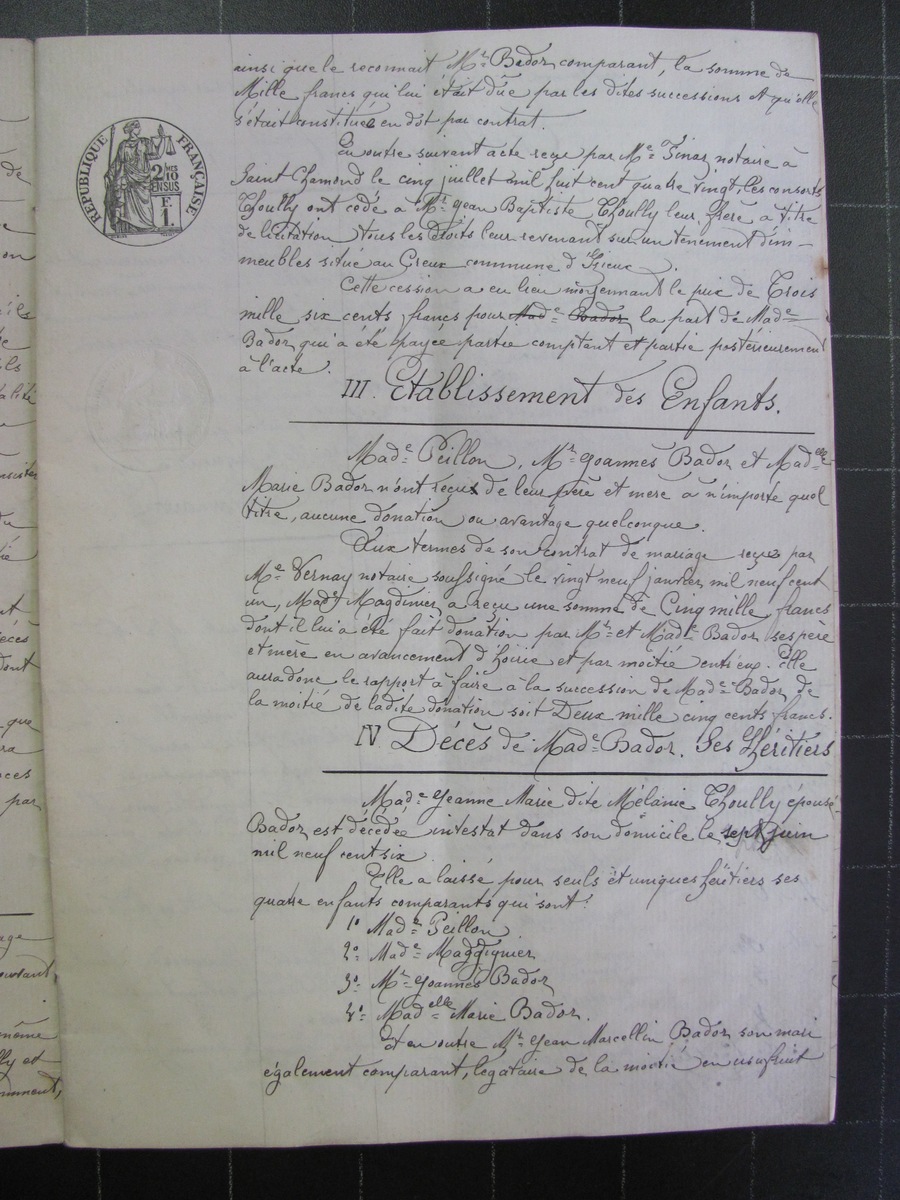 ainsi que le reconnait Mr Bador comparant, la somme de
Mille francs qui lui était due par les dites successions et qu'elle
s'était constituée en dôt par contrat.
En outre suivant acte reçu par Me Finaz notaire à
Saint Chamond le cinq juillet mil huit cent quatre vingt, les consorts
Thoully ont cédé à Mr Jean Baptiste Thoully leur frère à titre
de licitation tous les droits leur revenant sur un tènement d'im-
meubles situé au Creux commune d'Izieux.
Cette cession a eu lieu moyennant le prix de Trois
mille six cents francs pour Made Bador la part de Made
Bador qui a été payée partie comptant et partie postérieurement
à l'acte.
III. Etablissement des Enfants.
Made Peillon, Mr Joannès Bador et Madelle
Marie Bador n'ont reçus de leur père et mère à n'importe quel
titre, aucune donation ou avantage quelconque.
Aux termes de son contrat de mariage reçu par
Me Vernay notaire soussigné le vingt neuf janvier mil neuf cent
un, Made Magdinier a reçu une somme de Cinq mille francs
dont il lui a été fait donation par Mr et Made Bador ses père
et mère en avancement d'hoirie et par moitié entr'eux. Elle
aura donc le rapport à faire à la succession de Made Bador de
la moitié de ladite donation soit Deux mille cinq cents francs.
IV. Décès de Made Bador. Ses Héritiers
Made Jeanne Marie dite Mélanie Thoully épouse
Bador est décédée intestat dans son domicile le sept juin
mil neuf cent six
Elle a laissé pour seuls et uniques héritiers ses
quatre enfants comparants qui sont:
1º Made Peillon
2º Made Magdignier
3º Mr Joannès Bador
4º Madelle Marie Bador.
Et en outre Mr Jean Marcellin Bador son mari
également comparant, légataire de la moitié en usufruit
RÉPUBLIQUE FRANÇAISE
2/10 EN SUS
F. 1.